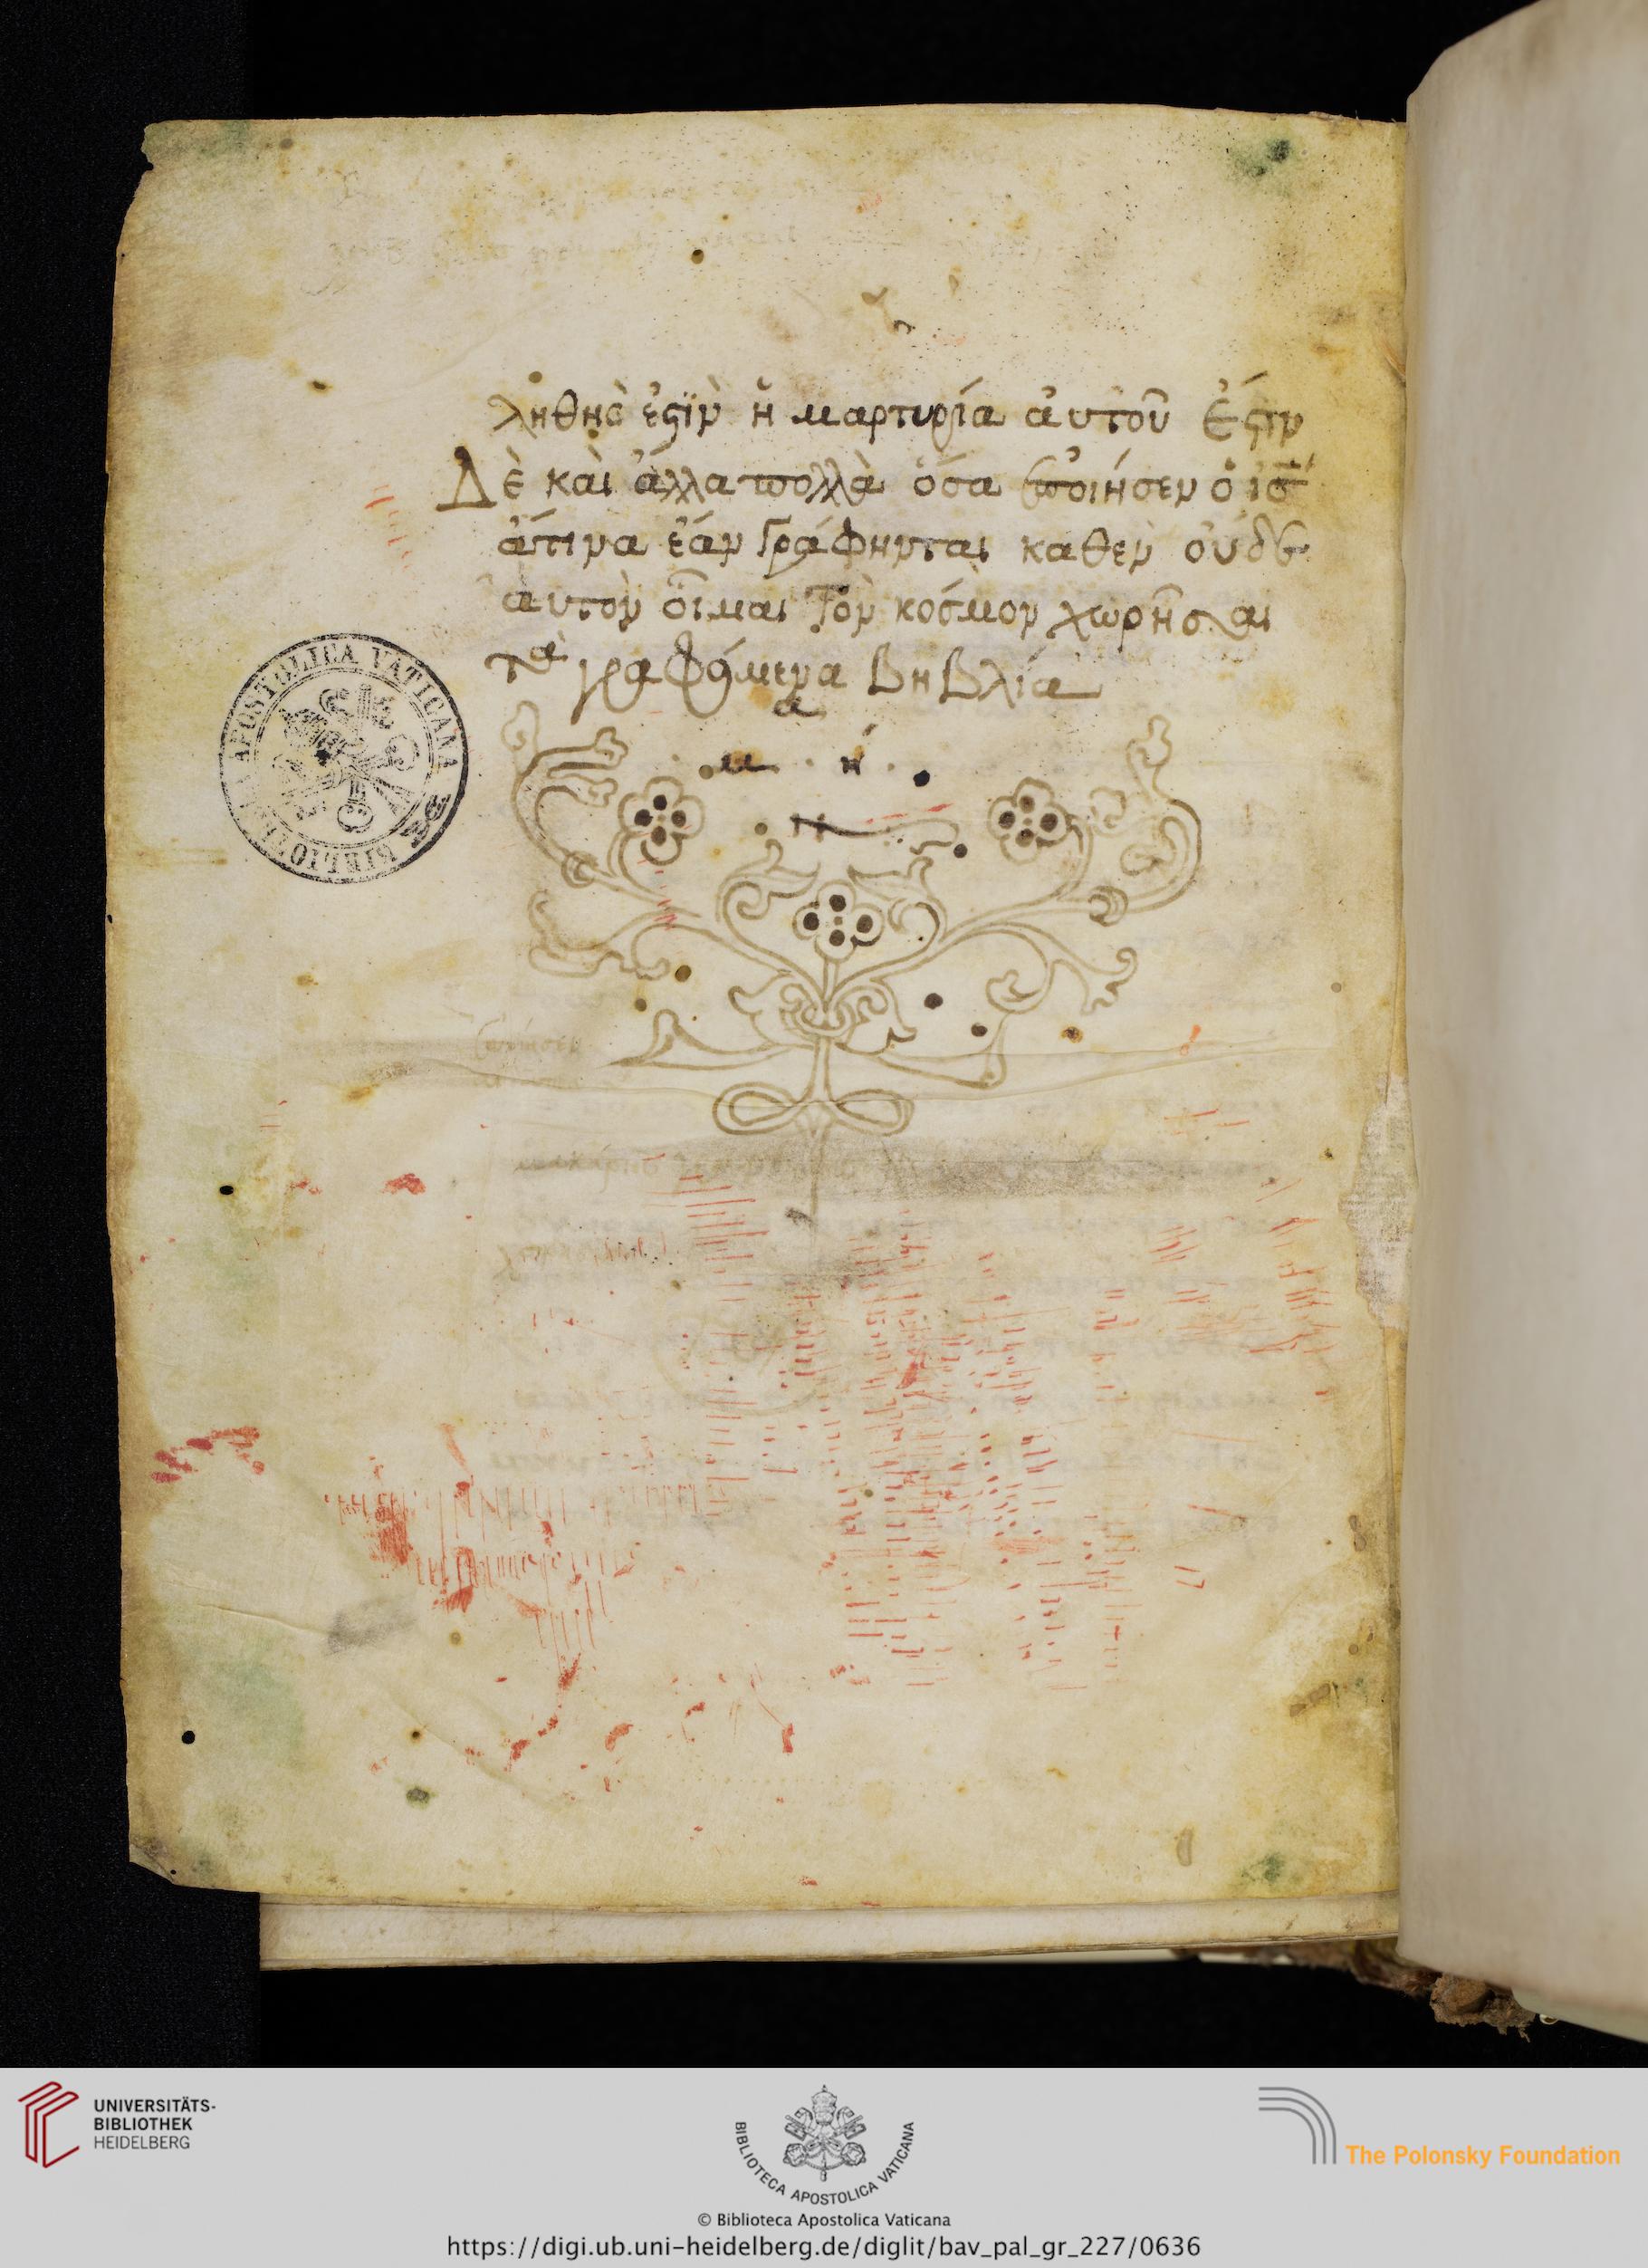 ληθησ ἐϛϊν ἡ μαρτυρία ἀυτοῦ Ἐϛιν
Δὲ καὶ ἄλλα πολλὰ ὅσα ἐποιήσεν ὁ ἰσ̅
ἅτινα ἐάν Γράφηνται καθεν οὐδὲ
ἀυτὸν οἶμαι Τὸν κόσμον χωρῆσαι
τὰ γραφόμενα Βηβλία
α
· μ · ή ·
ν
BIBLIOTECA APOSTOLICA VATICANA
UNIVERSITÄTS-
BIBLIOTHEK
HEIDELBERG
BIBLIOTECA APOSTOLICA VATICANA
The Polonsky Foundation
© Biblioteca Apostolica Vaticana
https://digi.ub.uni-heidelberg.de/diglit/bav_pal_gr_227/0636